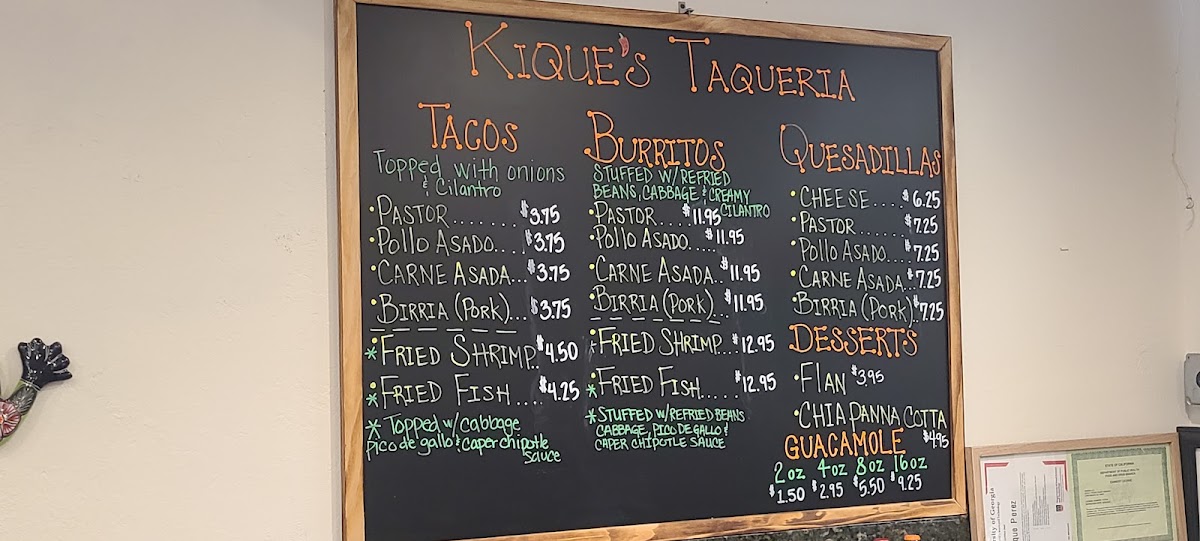 Kique's Taqueria
Tacos
Topped with onions
& Cilantro
• Pastor...... $3.75
• Pollo Asado... $3.75
• Carne Asada... $3.75
• Birria (Pork)... $3.75
* Fried Shrimp.. $4.50
* Fried Fish.... $4.25
* Topped w/ cabbage
pico de gallo & caper chipotle
sauce
Burritos
Stuffed w/ refried
beans, cabbage & creamy
cilantro
• Pastor.... $11.95
• Pollo Asado.... $11.95
• Carne Asada.. $11.95
• Birria (Pork)... $11.95
* Fried Shrimp... $12.95
* Fried Fish..... $12.95
* Stuffed w/ refried beans
cabbage, pico de gallo &
caper chipotle sauce
Quesadillas
• Cheese.... $6.25
• Pastor.... $7.25
• Pollo Asado.... $7.25
• Carne Asada... $7.25
• Birria (Pork).. $7.25
Desserts
• Flan $3.95
• Chia Panna Cotta
$4.95
Guacamole
2 oz 4 oz 8 oz 16 oz
$1.50 $2.95 $5.50 $9.25
State of California
Perez